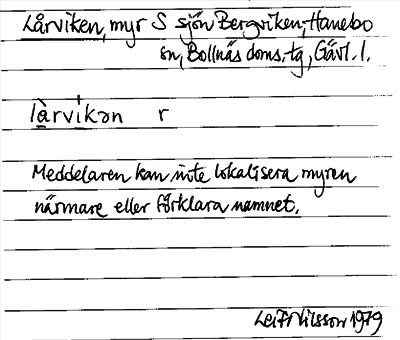 Lårviken, myr S sjön Bergviken, Hanebo
sn, Bollnäs doms.tg, Gävl. l.
làrvikən r
Meddelaren kan inte lokalisera myren
närmare eller förklara namnet.
Leif Nilsson 1979